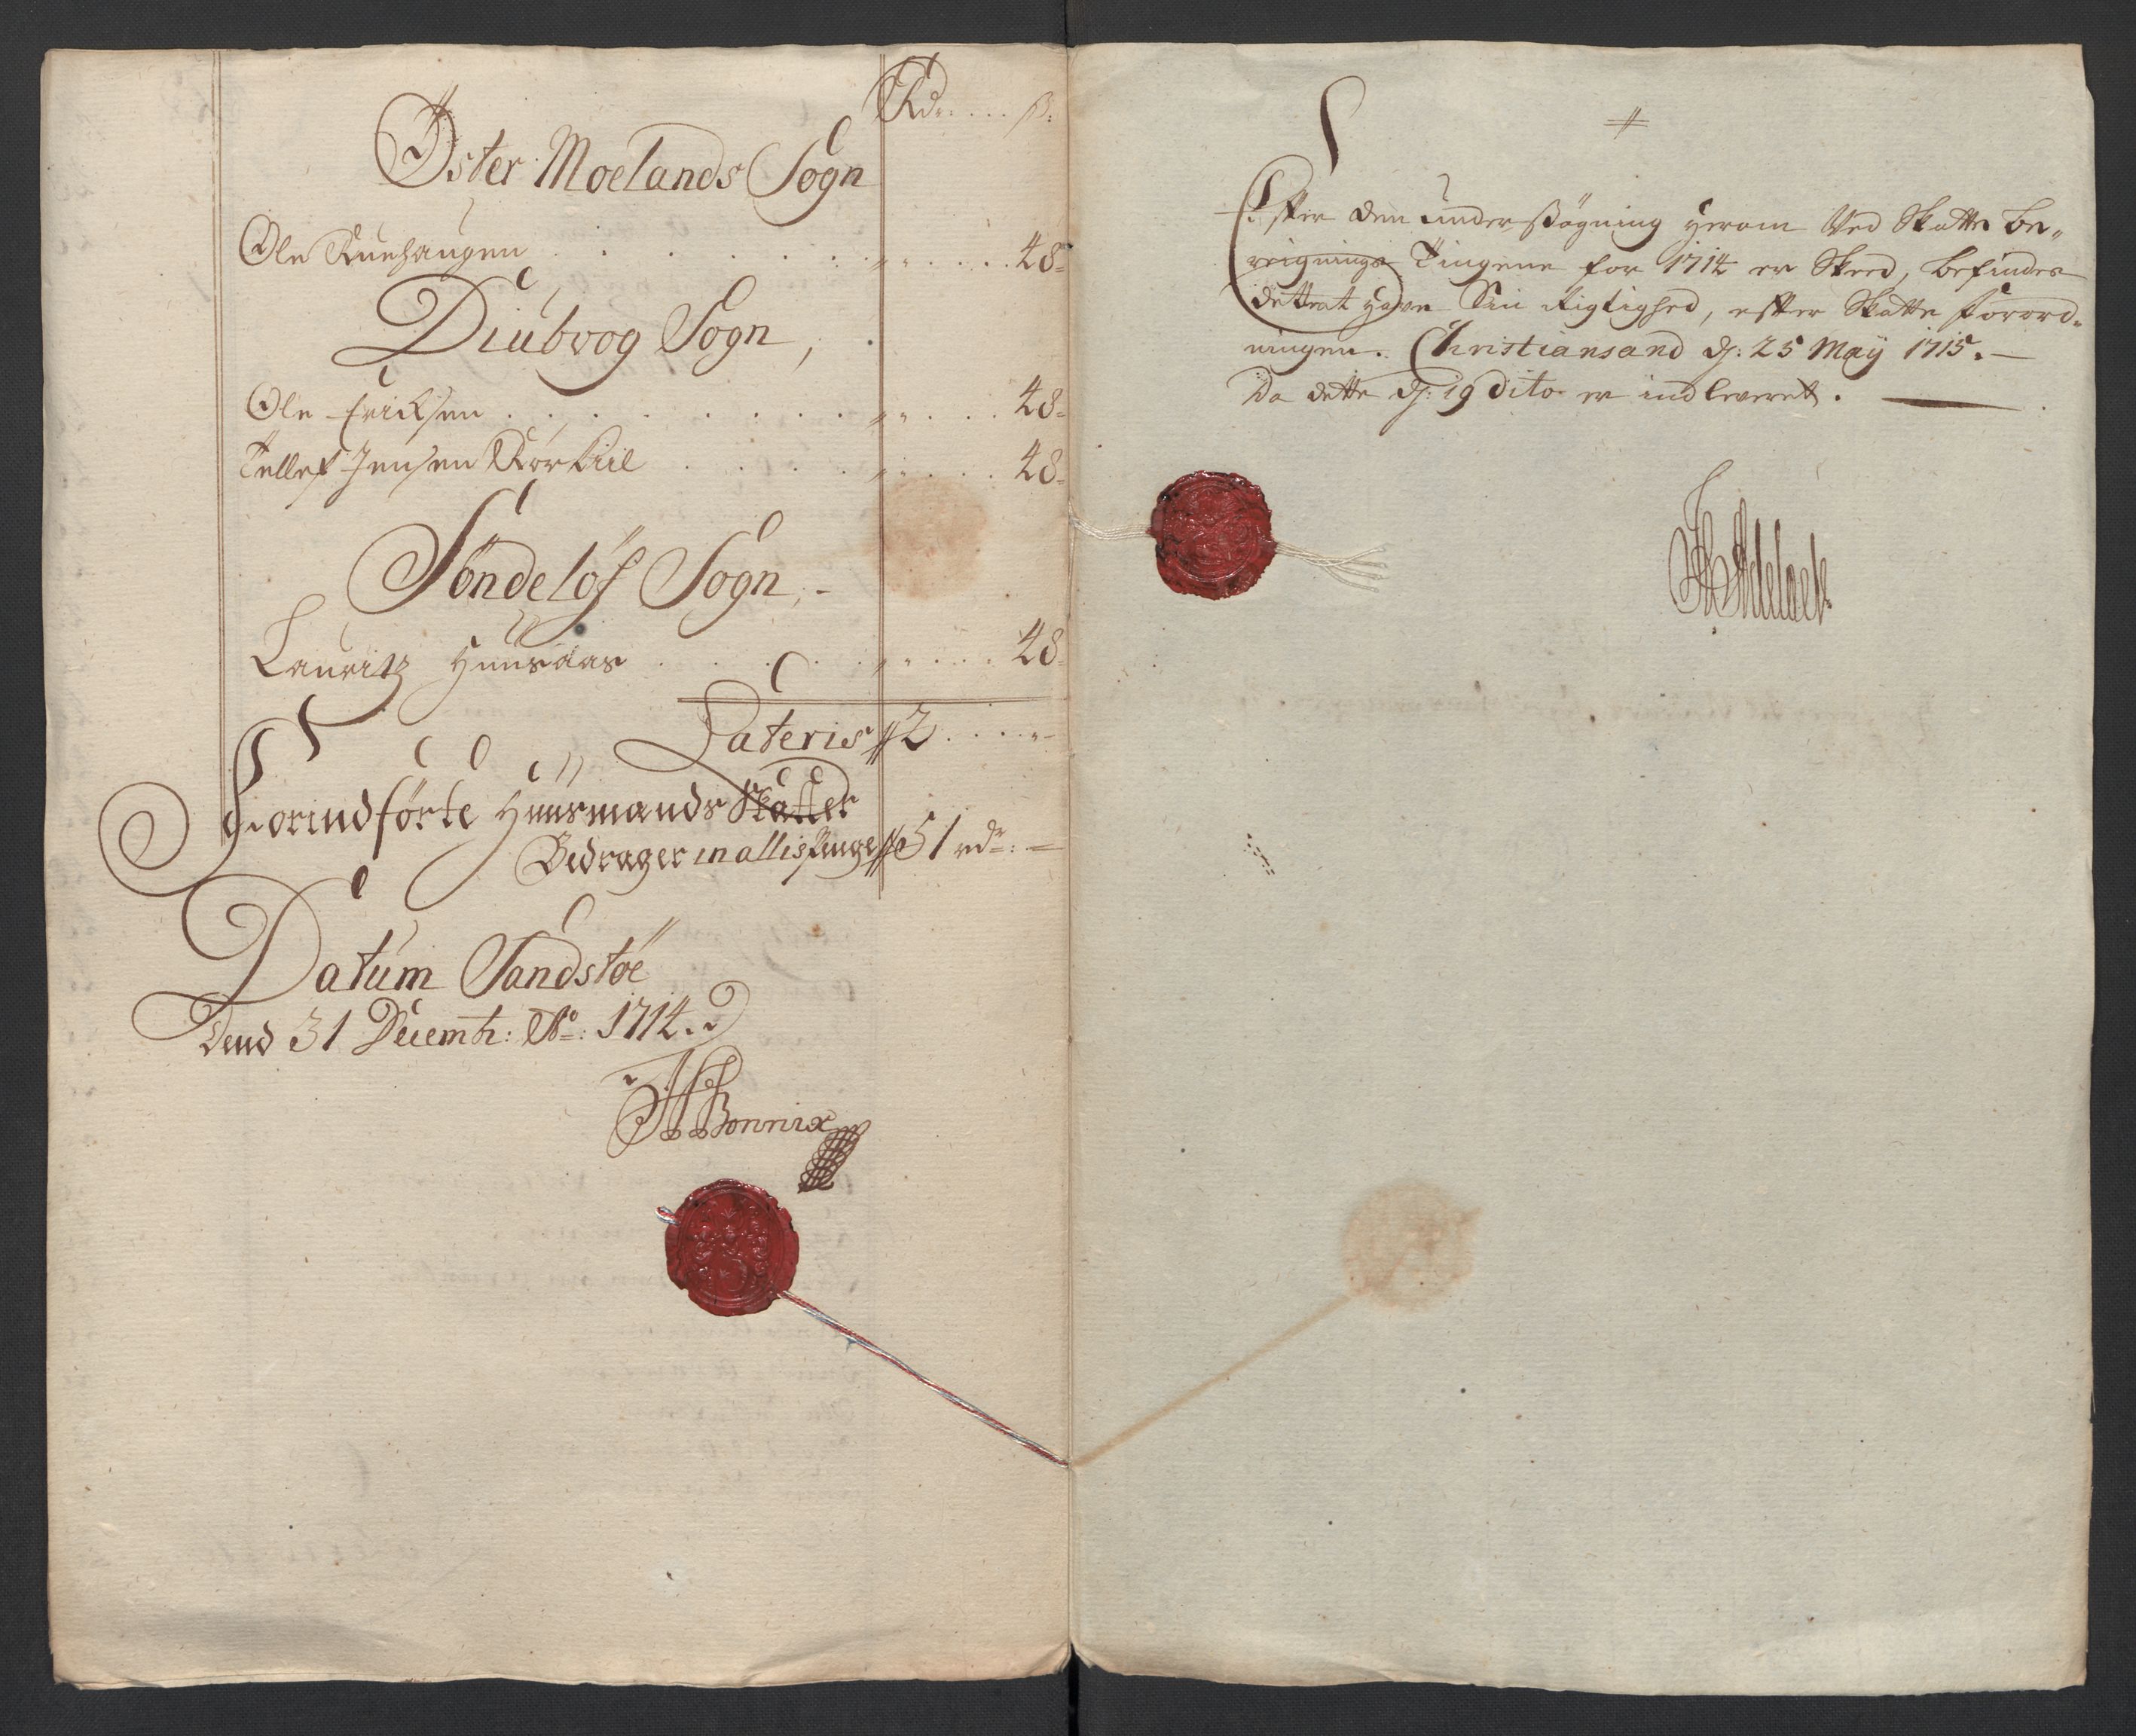 Rdr: ... ß:
Øster Moelands Sogn
Ole Ruehaugen . . . . . . . " . . . 48
Diübvog Sogn,
Ole Ericksen . . . . . . . " . . . 48
Tellef Jensen Rørkiil . . . . " . . . 48
Søndeløf Sogn,-
Lauritz Huusaas . . . . . " . . . 48
Lateris 2 . . . "
Forindførte Huusmands Skatter
Bedrager in allis Penge 51 rdr: —
Datum Sandstøe
Dend 31 Decembr: Ao: 1714.
Bonnix
Efter den underßøgning herom Ved Skatte be-
reignings Tingene for 1714 er Skeed, befindes
dette at have Sin Rigtighed, efter Skatte forord-
ningen. Christiansand d: 25 Maÿ 1715. —
Da dette d: 19 dito er indleveret. —
Adelaer